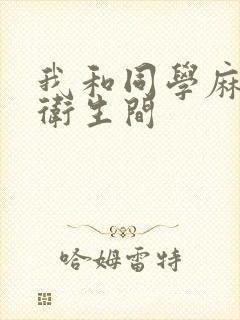 我和同學麻
衛生間
哈姆雷特